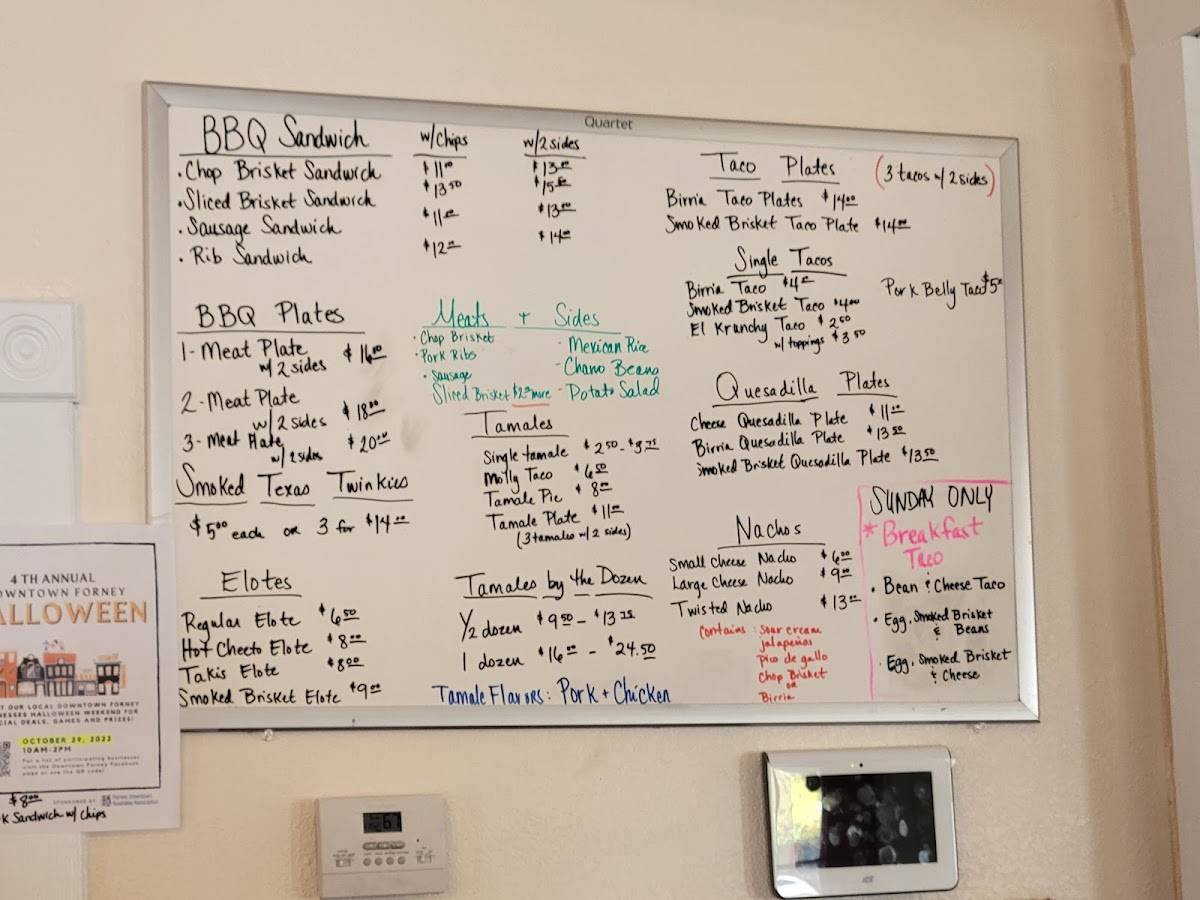 Quartet
BBQ Sandwich w/chips w/2 sides
• Chop Brisket Sandwich $11.00 $13.00
• Sliced Brisket Sandwich $13.50 $15.50
• Sausage Sandwich $11.00 $13.00
• Rib Sandwich $12.00 $14.00
BBQ Plates
1-Meat Plate $16.00
w/ 2 sides
2-Meat Plate
w/ 2 sides $18.00
3-Meat Plate $20.00
w/ 2 sides
Smoked Texas Twinkies
$5.00 each or 3 for $14.00
Elotes
Regular Elote $6.50
Hot Cheeto Elote $8.00
Takis Elote $8.00
Smoked Brisket Elote $9.00
Meats + Sides
• Chop Brisket
• Pork Ribs
• Sausage
Sliced Brisket $2.00 more
- Mexican Rice
- Charro Beans
- Potato Salad
Tamales
Single tamale $2.50 - $3.75
Molly Taco $6.50
Tamale Pie $8.00
Tamale Plate $11.00
(3 tamales w/ 2 sides)
Tamales by the Dozen
1/2 dozen $9.50 - $13.75
1 dozen $16.00 - $24.50
Tamale Flavors: Pork + Chicken
Taco Plates (3 tacos w/ 2 sides)
Birria Taco Plates $14.00
Smoked Brisket Taco Plate $14.00
Single Tacos
Birria Taco $4.00
Smoked Brisket Taco $4.00
El Krunchy Taco $2.50
w/ toppings $3.50
Pork Belly Taco $5.00
Quesadilla Plates
Cheese Quesadilla Plate $11.00
Birria Quesadilla Plate $13.50
Smoked Brisket Quesadilla Plate $13.50
Nachos
Small Cheese Nacho $6.00
Large Cheese Nacho $9.00
Twisted Nacho $13.00
Contains: Sour cream
jalapeños
Pico de gallo
Chop Brisket
or
Birria
SUNDAY ONLY
* Breakfast
Taco
• Bean & Cheese Taco
• Egg, Smoked Brisket
& Beans
• Egg, Smoked Brisket
& Cheese
4TH ANNUAL
OWNTOWN FORNEY
ALLOWEEN
OUR LOCAL DOWNTOWN FORNEY
NESSES HALLOWEEN WEEKEND FOR
CIAL DEALS, GAMES AND PRIZES!
OCTOBER 29, 2022
10AM-2PM
For a list of participating businesses
visit the Downtown Forney Facebook
page or use the QR code!
SPONSORED BY:
$8.00
K Sandwich w/ chips
67
ADT